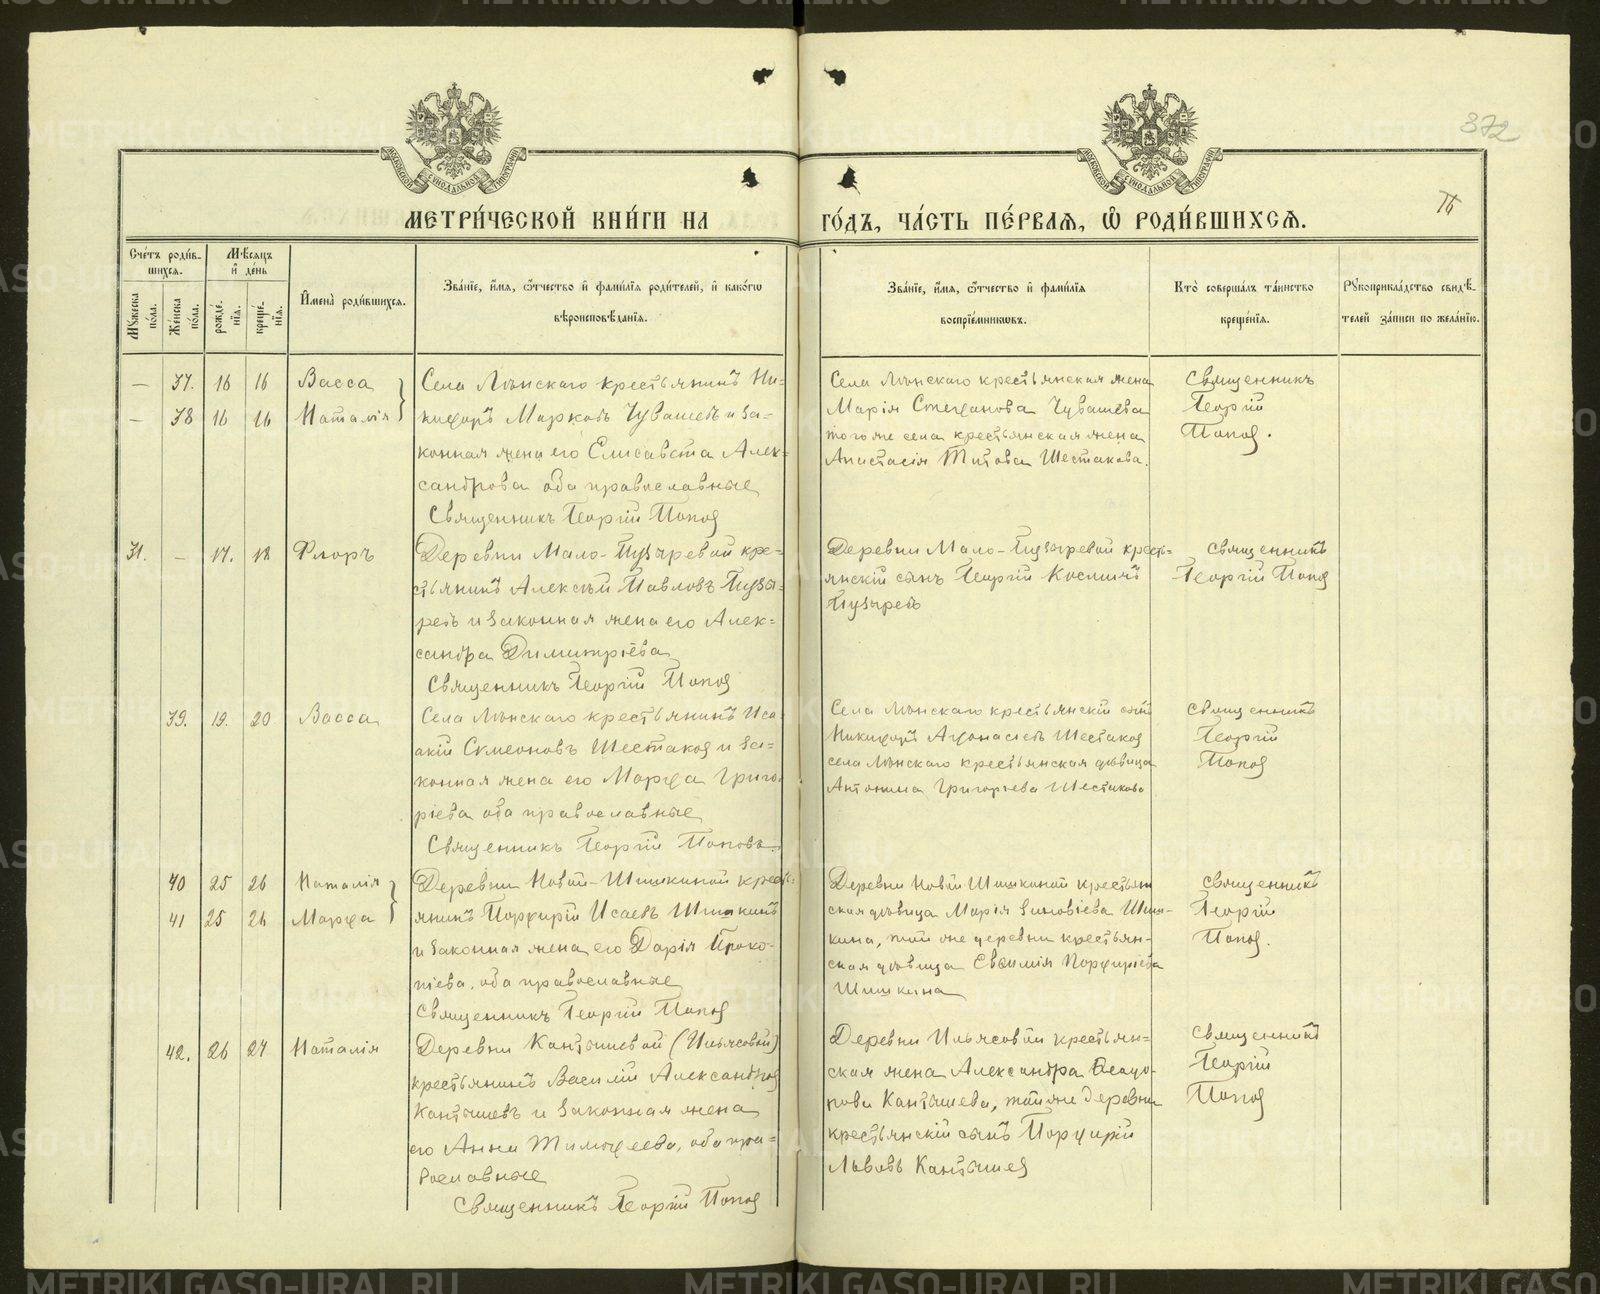 372
МЕТРИ́ЧЕСКОЙ КНИ́ГИ НА
ГО́ДЪ, ЧА́СТЬ ПЕ́РВАѦ, Ѽ РОДИ́ВШИХСѦ.
Сче́тъ роди́в-
шихся.
Мѣ́сяцъ
и де́нь
Му́жеска по́ла.
Же́нска по́ла.
рожде́нїѧ.
креще́нїѧ.
И҆мена̀ роди́вшихся.
Зва́нїе, и҆́мѧ, ѻ҆́тчество и҆ фами́лїѧ роди́телей, и҆ како́гѡ
вѣроисповѣ́данїѧ.
Зва́нїе, и҆́мѧ, ѻ҆́тчество и҆ фами́лїѧ
воспрїе́мникѡвъ.
Кто̀ соверша́лъ та́инство
креще́нїѧ.
Рукоприкла́дство свидѣ́-
телей за́писи по жела́нїю.
— 37. 16 16 Васса
— 38 16 16 Наталія
Села крестьянинъ Ни-
кифоръ Марковъ Чувашевъ и за-
конная жена его Елисавета Алек-
сандрова оба православные
Священникъ Георгій Попов
Села крестьянская жена
Марія Стефанова Чувашева
того же села крестьянская жена
Анастасія Титова Шестакова.
Священникъ
Георгій
Попов.
31. — 17. 18 Флоръ
Деревни Мало-Пузыревой кре-
стьянинъ Алексѣй Павловъ Пузы-
ревъ и законная жена его Алек-
сандра Димитріева
Священникъ Георгій Попов
Деревни Мало-Пузыревой кресть-
янскій сынъ Георгій Косминъ
Пузыревъ
Священникъ
Георгій Попов
39. 19. 20 Васса
Села крестьянинъ Иса-
акій Симеоновъ Шестаков и за-
конная жена его Марфа Григо-
ріева оба православные
Священникъ Георгій Поповъ.
Села крестьянскій сынъ
Никифоръ Афонасіевъ Шестаков
села крестьянская дѣвица
Антонина Григорьева Шестакова
Священникъ
Георгій
Попов
40 25 26 Наталія
41 25 26 Марфа
Деревни Новой-Шишкиной кресть-
янинъ Порфирій Исаевъ Шишкинъ
и законная жена его Дарія Проко-
піева, оба православные
Священникъ Георгій Попов
Деревни Новой Шишкиной крестьян
ская дѣвица Марія Зиновіева Шиш-
кина, той же деревни крестьян-
ская дѣвица Евфимія Порфиріева
Шишкина
Священникъ
Георгій
Попов.
42. 26 27 Наталія
Деревни Кантышевой (Ильясовой)
крестьянинъ Василій Александров
Кантышевъ и законная жена
его Анна Тимофеева, оба пра-
вославные
Священникъ Георгій Попов
Деревни Ильясовой крестьян-
ская жена Александра
Кантышева, той же деревни
крестьянскій сынъ Порфирій
Львовъ Кантышев
Священникъ
Георгій
Попов
METRIKI.GASO-URAL.RU